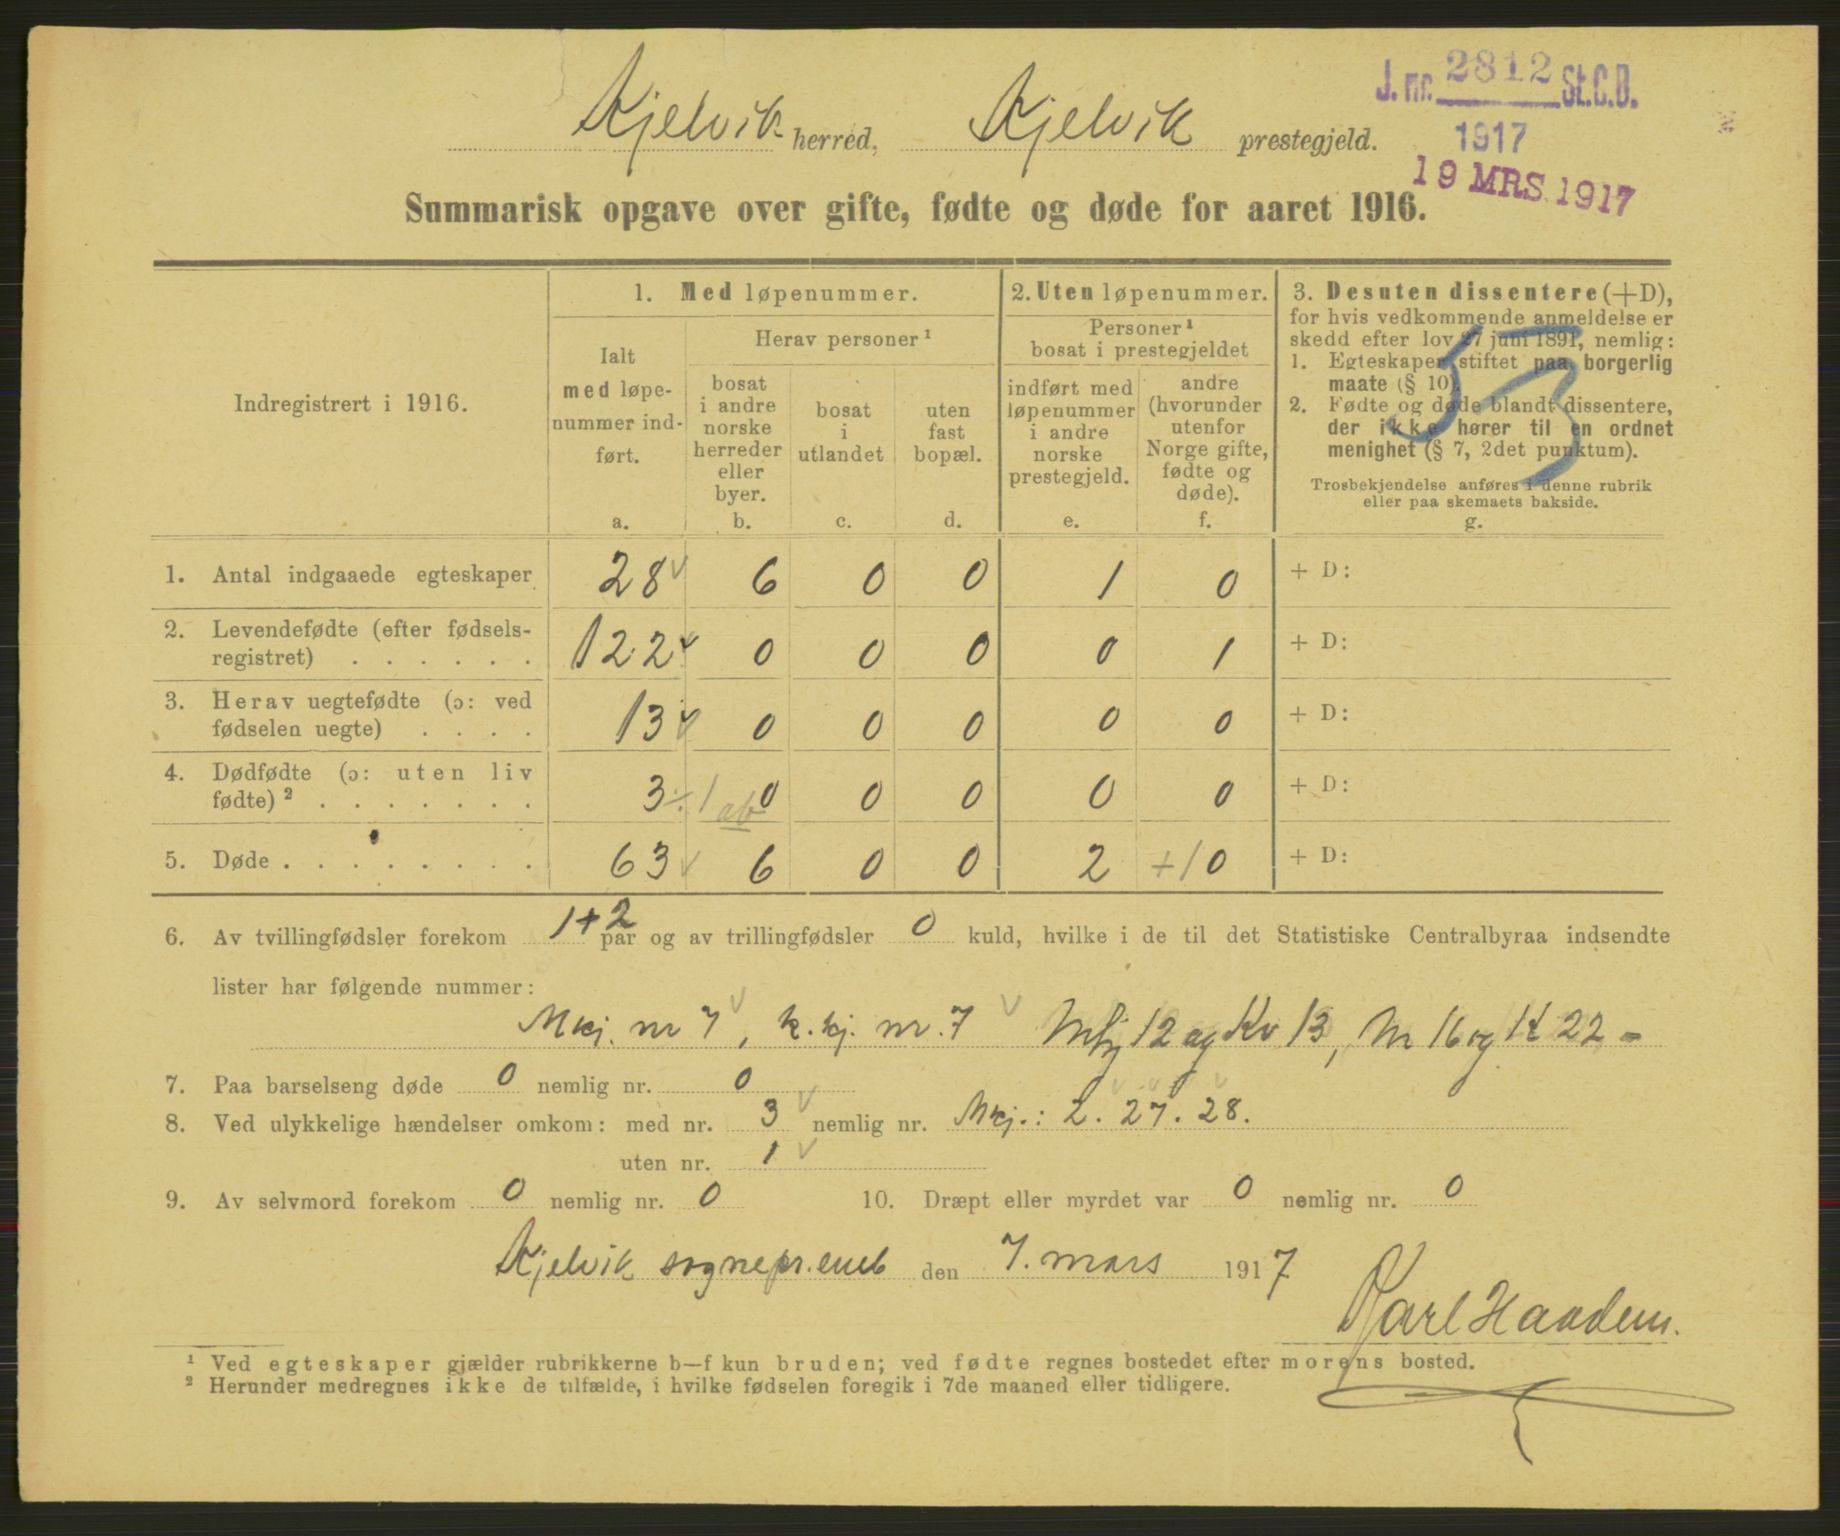 J. nr. 2812 St.C.B.
1917
19 MRS. 1917
Kjelvik herred, Kjelvik prestegjeld.
Summarisk opgave over gifte, fødte og døde for aaret 1916.
Indregistrert i 1916.
1. Med løpenummer.
Ialt
med løpe-
nummer ind-
ført.
a.
Herav personer ¹
bosat
i andre
norske
herreder
eller
byer.
b.
bosat
i
utlandet
c.
uten
fast
bopæl.
d.
2. Uten løpenummer.
Personer ¹
bosat i prestegjeldet
indført med
løpenummer
i andre
norske
prestegjeld.
e.
andre
(hvorunder
utenfor
Norge gifte,
fødte og
døde).
f.
3. Desuten dissentere (+D),
for hvis vedkommende anmeldelse er
skedd efter lov 27 juni 1891, nemlig:
1. Egteskaper stiftet paa borgerlig
maate (§ 10).
2. Fødte og døde blandt dissentere,
der ikke hører til en ordnet
menighet (§ 7, 2det punktum).
Trosbekjendelse anføres i denne rubrik
eller paa skemaets bakside.
g.
53
1. Antal indgaaede egteskaper 28 ✓ 6 0 0 1 0 + D:
2. Levendefødte (efter fødsels-
registret) . . . . . . 122 ✓ 0 0 0 0 1 + D:
3. Herav uegtefødte (ɔ: ved
fødselen uegte) . . . . 13 ✓ 0 0 0 0 0 + D:
4. Dødfødte (ɔ: uten liv
fødte) ² . . . . . . . 3 ÷1 ab 0 0 0 0 0 + D:
5. Døde . . . . . . . . 63 ✓ 6 0 0 2 +1 0 + D:
6. Av tvillingfødsler forekom 1+2 par og av trillingfødsler 0 kuld, hvilke i de til det Statistiske Centralbyraa indsendte
lister har følgende nummer:
Mkj. nr 7 ✓, k.kj. nr. 7 ✓ Mkj 12 og Kv 13, M 16 og K 22 -
7. Paa barselseng døde 0 nemlig nr. 0
8. Ved ulykkelige hændelser omkom: med nr. 3 ✓ nemlig nr. Mkj.: 2. 27. 28.
uten nr. 1 ✓
9. Av selvmord forekom 0 nemlig nr. 0 10. Dræpt eller myrdet var 0 nemlig nr. 0
Kjelvik sognepr.emb den 7. mars 1917
Karl Haadem.
¹ Ved egteskaper gjælder rubrikkerne b—f kun bruden; ved fødte regnes bostedet efter morens bosted.
² Herunder medregnes ikke de tilfælde, i hvilke fødselen foregik i 7de maaned eller tidligere.